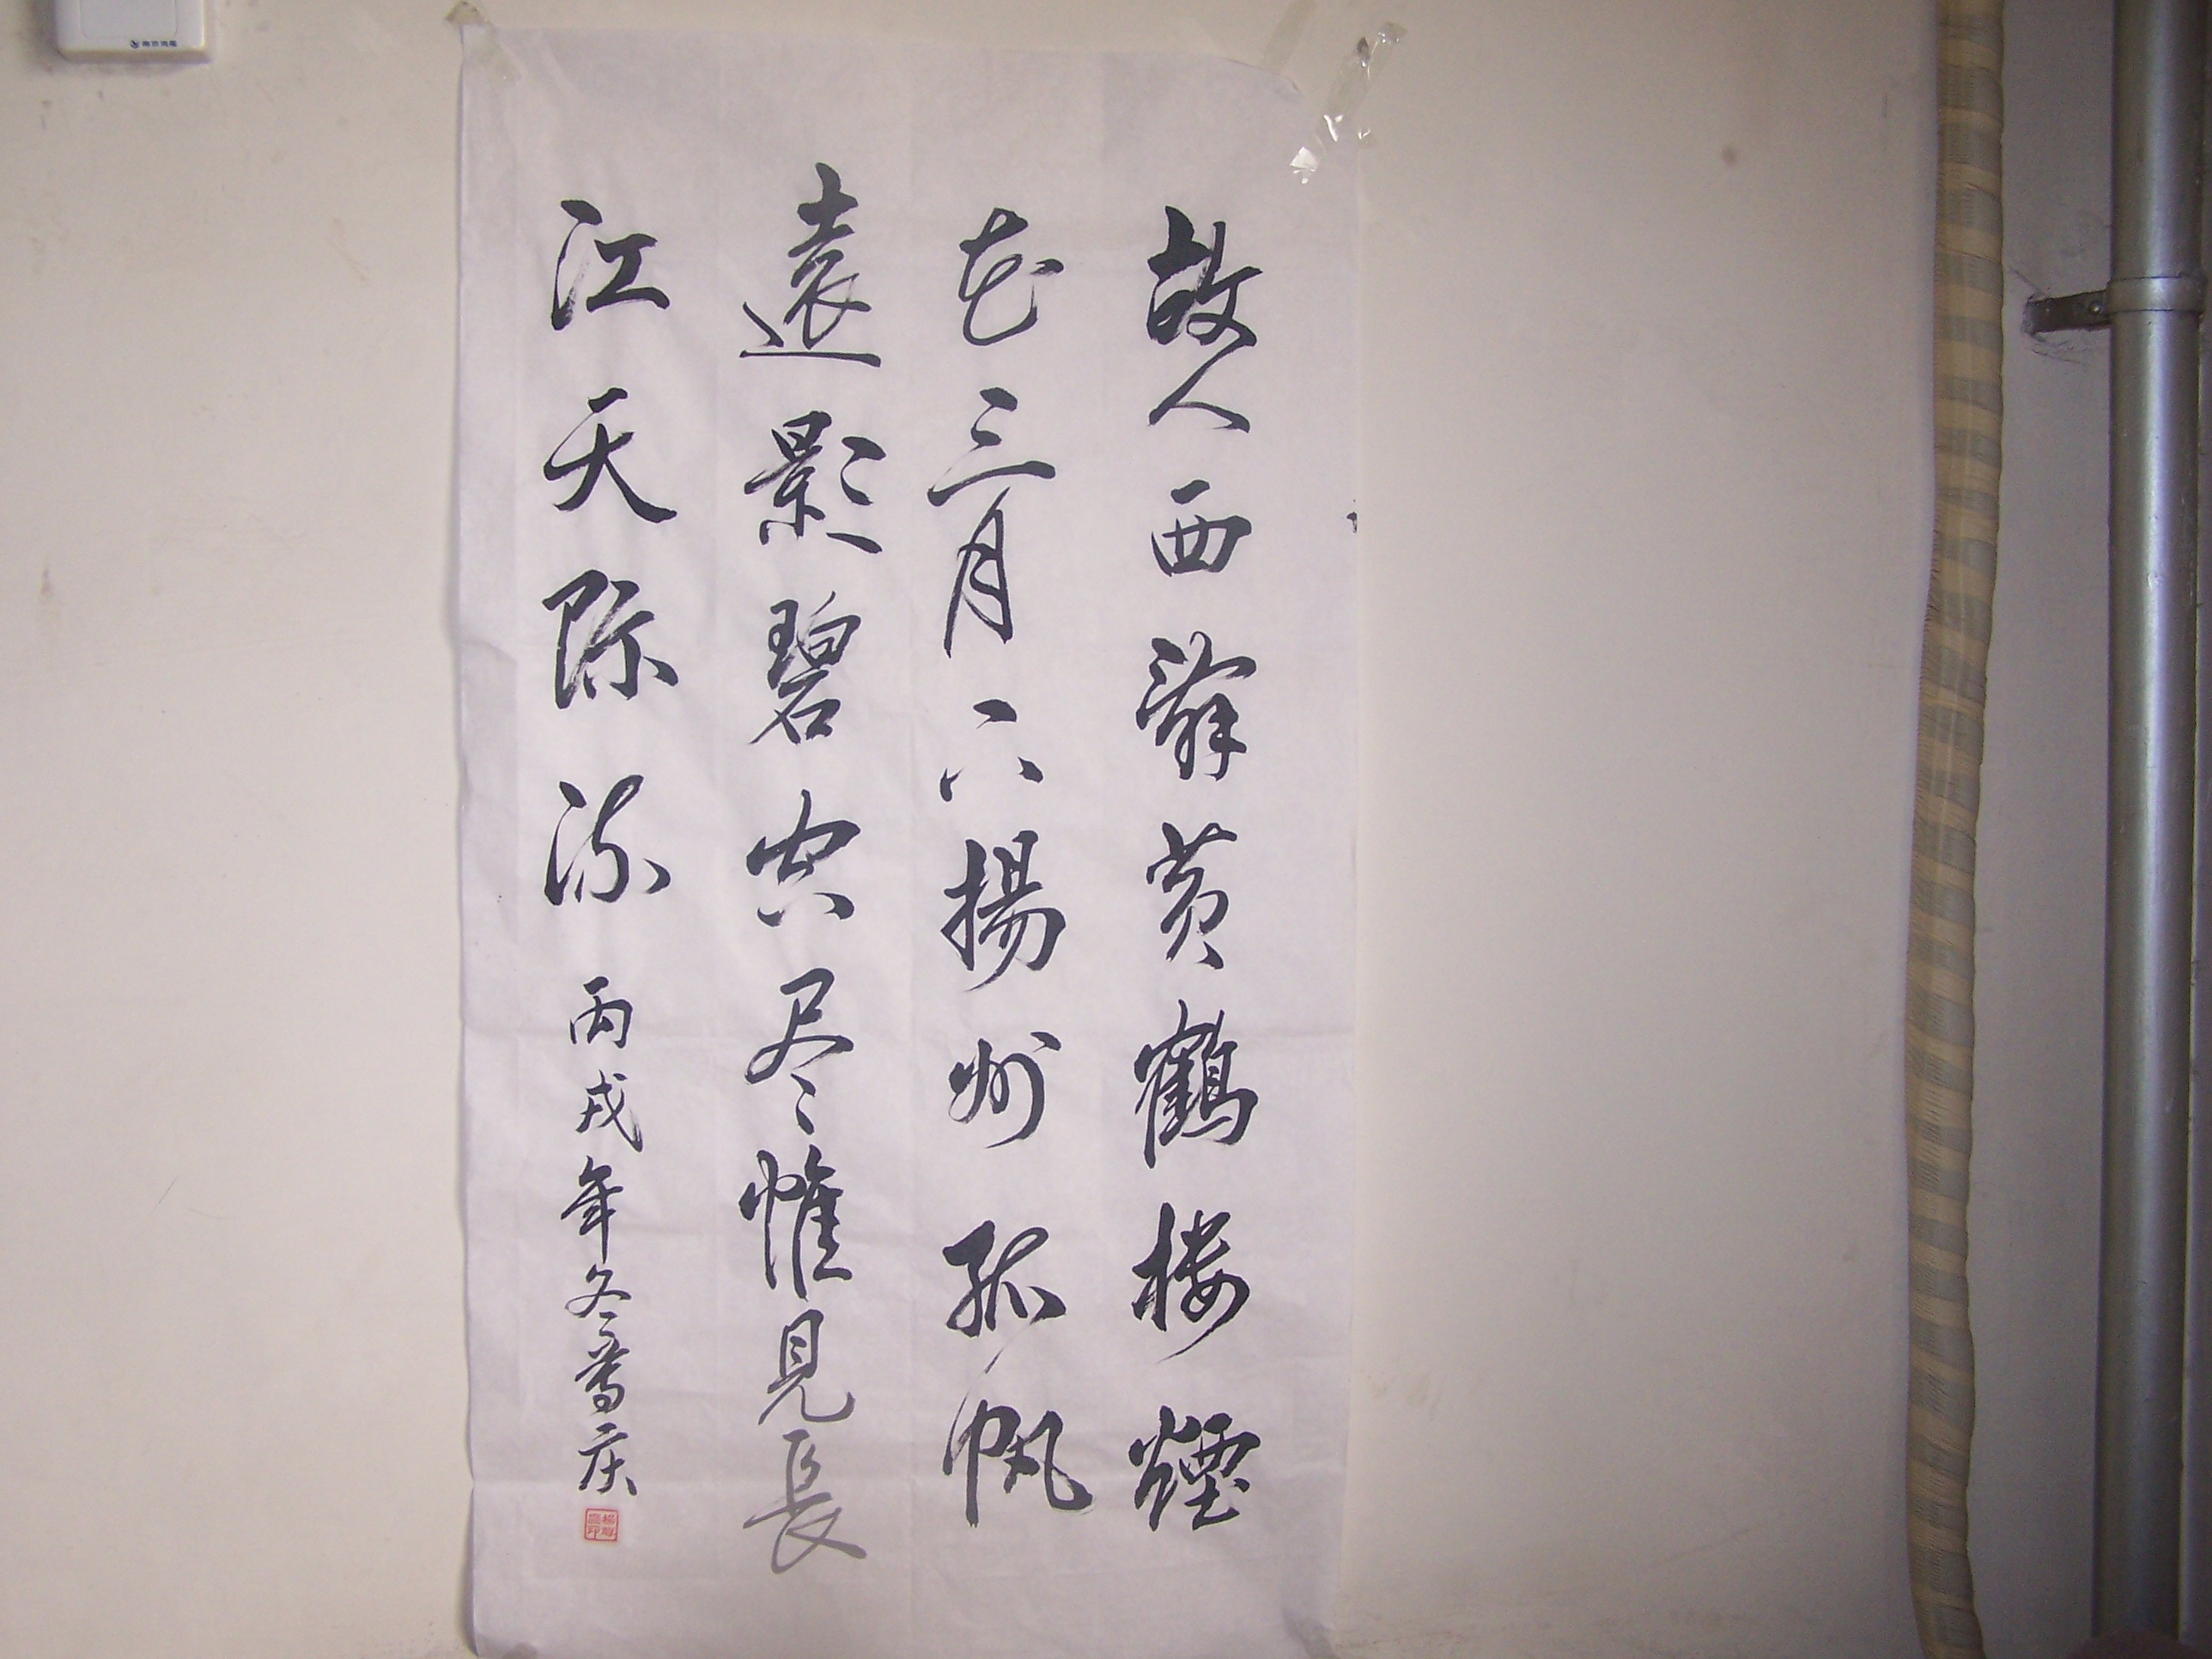 故人西辭黄鶴楼煙
花三月下揚州孤帆
遠影碧空尽惟見長
江天际流
丙戌年冬普庆